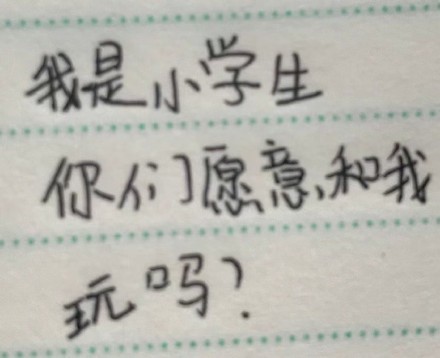 我是小学生
你们愿意和我
玩吗?